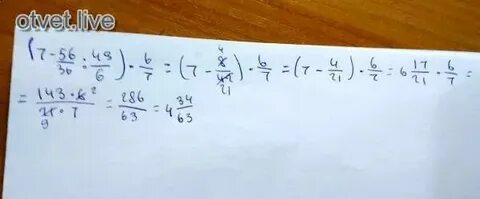 otvet.live
(7 - 56/36 : 49/6) · 6/7 = (7 - 8/42 4/21) · 6/7 = (7 - 4/21) · 6/7 = 6 17/21 · 6/7 =
= 143 · 6 2/21 · 7 9 = 286/63 = 4 34/63